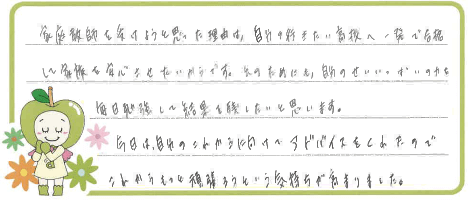 家庭教師を受けようと思った理由は、自分の行きたい高校へ一発で合格
して家族を安心させたいからです。そのためにも、自分のせいいっぱいの力を
毎日勉強して結果を残したいと思います。
今日は、自分のこれからに向けてアドバイスをくれたので
これからもっと頑張ろうという気持ちが高まりました。